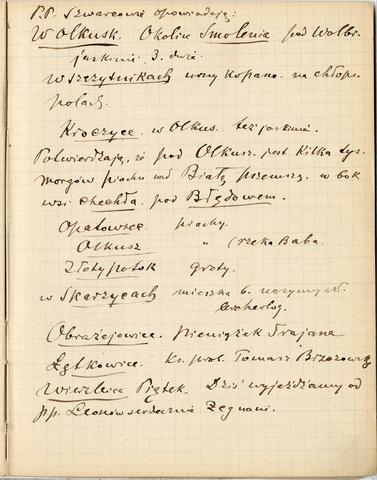 P.P. Szwarcowie opowiadają:
W Olkusk. Okolice Smolenia pod Wolbr.
jaskinie. 3. duże.
W Szczytnikach urny kopano na chłops.
polach.
Kroczyce. w Olkus. też jaskinie.
Potwierdzają, że pod Olkusz. jest kilka tys.
morgów piachu nad Białą przemszą w bok
wsi Chechła pod Błędowem.
Opatowice piachy.
Olkusz " (rzeka Baba.
Złoty potok groty.
w Skarzycach mieszka b.
Archeolog.
Obrażejowice. pieniążek Trajana
Łętkowice. Ks. prob. Tomasz Brzozowsk
Wierzbica Piątek. Dziś wyjeżdżamy od
pp. Leonów serdecznie żegnani.